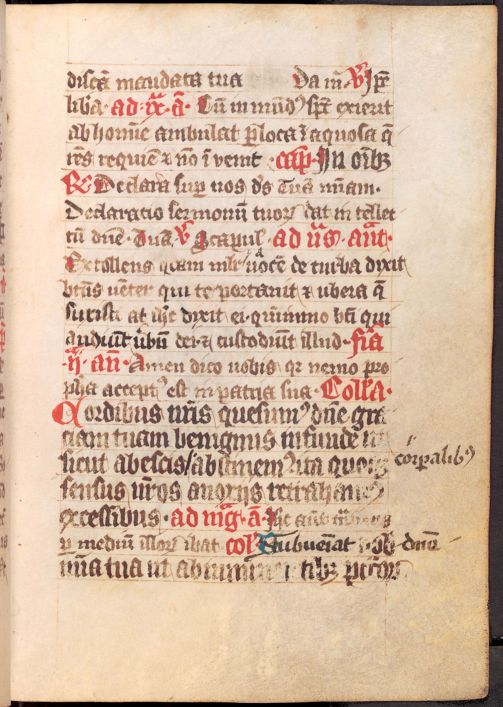 discā mandata tua Da m̄ ℣ Ip̄e
liba· ad ·ix· a· Cū inmūdꝰ sp̄s exierit
ab homīe ambulat ꝑ loca īaquosa q̄
rēs requiē ⁊ nō īvenit · cap̄· In oībꝫ
℟ Declara suꝑ nos dѕ̄ Tuā m̄iam·
Declaratio sermonū tuoꝝ dat intellec
tū dn̄e· Tuā ℣ Scapul̓· ad v̄s· ant̄·
Extollens quam mlr̄ vocē de turba dixit
btūs venter qui te portavit ⁊ ubera q̄
suxisti at ih̄c dixit ei· quinimmo bt̄i qui
audiūt v̄bum dei· ⁊ custodiūt illud · fīa
·ij· an̄· Amen dico vobis qꝛ nemo pro
pha acceptꝰ est in patria sua · Coll̓a·
Cordibus nr̄is quesumꝰ dn̄e gra
ciam tuam benignus infunde
sicut abescis ab
corꝑalibꝰ
sensus nr̄os a noxijs retrahamꝰ
excessibus · ad mg̅· a· Ih̄c autē
ꝑ mediū illoꝝ ibat col̓ Subveniat dn̄e
mīa tua ut ab